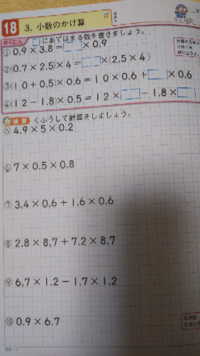 18 3. 小数のかけ算
かくにん □にあてはまる数を書きましょう。
① 0.9×3.8=□×0.9
② (0.7×2.5)×4=□×(2.5×4)
③ (10+0.5)×0.6=10×0.6+□×0.6
④ (12-1.8)×0.5=12×□-1.8×□
くふうして計算をしましょう。
⑤ 4.9×5×0.2
⑥ 7×0.5×0.8
⑦ 3.4×0.6+1.6×0.6
⑧ 2.8×8.7+7.2×8.7
⑨ 6.7×1.2-1.7×1.2
⑩ 0.9×6.7